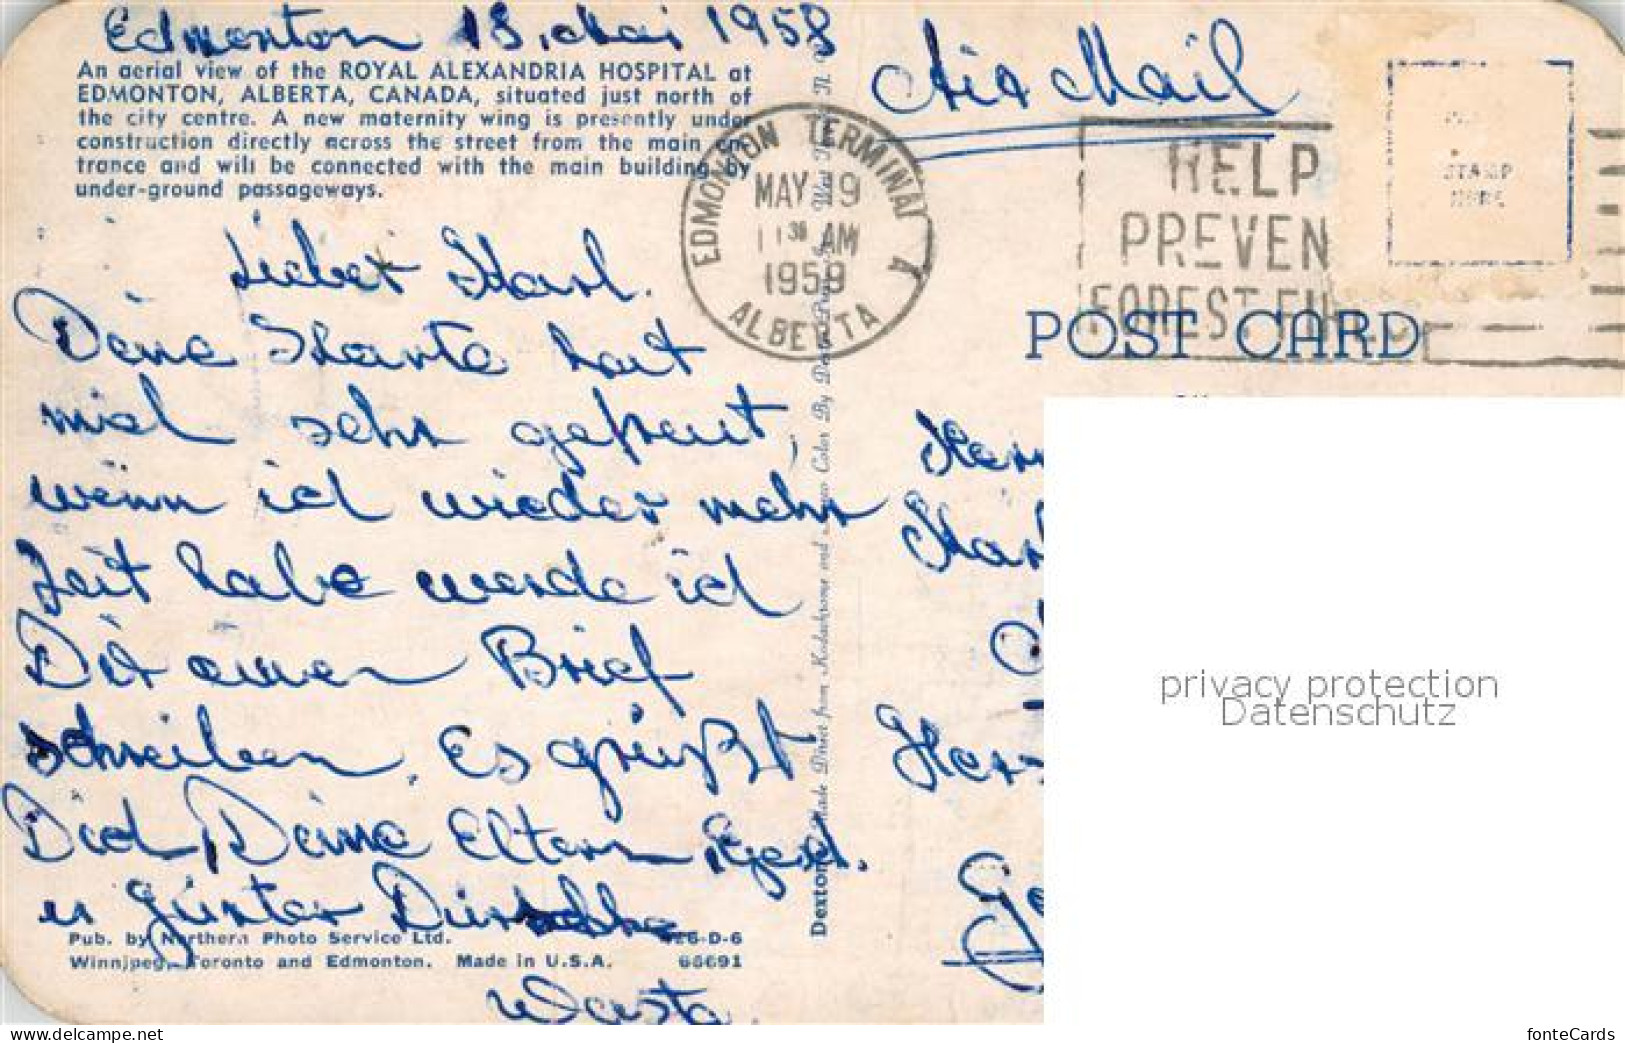 Edmonton 18. Mai 1958
Air Mail
An aerial view of the ROYAL ALEXANDRIA HOSPITAL at
EDMONTON, ALBERTA, CANADA, situated just north of
the city centre. A new maternity wing is presently under
construction directly across the street from the main en-
trance and will be connected with the main building by
under-ground passageways.
EDMONTON TERMINAL A
MAY 19
11 30 AM
1959
ALBERTA
HELP
PREVEN
FOREST FI
STAMP
HERE
POST CARD
Lieber Karl.
Deine Karte hat
mich sehr gefreut,
wenn ich wieder mehr
Zeit habe werde ich
Dir einen Brief
schreiben. Es grüßt
Dich, Deine Eltern, Gerd.
u Günter Dein
Pub. by Northern Photo Service Ltd. 426-D-6
Winnipeg, Toronto and Edmonton. Made in U.S.A. 66691
Made Direct from Kodachrome and Ansco Color By Dexter Press, Inc. West N. Y.
privacy protection
Datenschutz
www.delcampe.net/en
fonteCards